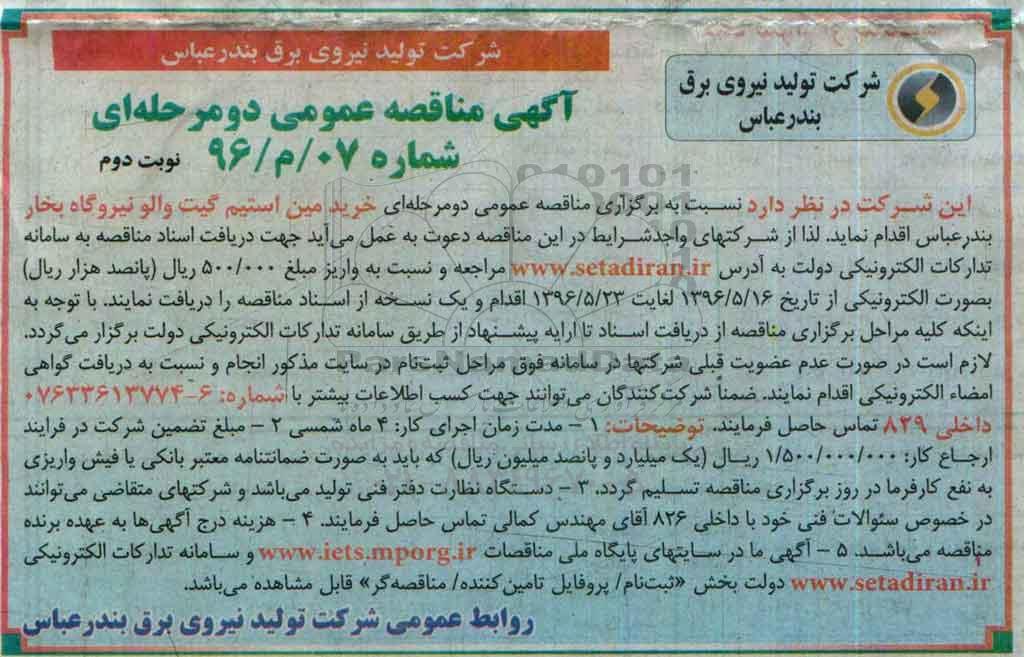 شرکت تولید نیروی برق بندرعباس
شرکت تولید نیروی برق
بندرعباس
آگهی مناقصه عمومی دومرحله‌ای
شماره ۰۷/م/۹۶
نوبت دوم
این شرکت در نظر دارد نسبت به برگزاری مناقصه عمومی دومرحله‌ای خرید مین استیم گیت والو نیروگاه بخار
بندرعباس اقدام نماید. لذا از شرکتهای واجدشرایط در این مناقصه دعوت به عمل می‌آید جهت دریافت اسناد مناقصه به سامانه
تدارکات الکترونیکی دولت به آدرس www.setadiran.ir مراجعه و نسبت به واریز مبلغ ۵۰۰/۰۰۰ ریال (پانصد هزار ریال)
بصورت الکترونیکی از تاریخ ۱۳۹۶/۵/۱۶ لغایت ۱۳۹۶/۵/۲۳ اقدام و یک نسخه از اسناد مناقصه را دریافت نمایند. با توجه به
اینکه کلیه مراحل برگزاری مناقصه از دریافت اسناد تا ارایه پیشنهاد از طریق سامانه تدارکات الکترونیکی دولت برگزار می‌گردد.
لازم است در صورت عدم عضویت قبلی شرکتها در سامانه فوق مراحل ثبت‌نام در سایت مذکور انجام و نسبت به دریافت گواهی
امضاء الکترونیکی اقدام نمایند. ضمناً شرکت‌کنندگان می‌توانند جهت کسب اطلاعات بیشتر با شماره: ۶-۰۷۶۳۳۶۱۳۷۷۴
داخلی ۸۲۹ تماس حاصل فرمایند. توضیحات: ۱ – مدت زمان اجرای کار: ۴ ماه شمسی ۲ – مبلغ تضمین شرکت در فرایند
ارجاع کار: ۱/۵۰۰/۰۰۰/۰۰۰ ریال (یک میلیارد و پانصد میلیون ریال) که باید به صورت ضمانتنامه معتبر بانکی یا فیش واریزی
به نفع کارفرما در روز برگزاری مناقصه تسلیم گردد. ۳ – دستگاه نظارت دفتر فنی تولید می‌باشد و شرکتهای متقاضی می‌توانند
در خصوص سئوالات فنی خود با داخلی ۸۲۶ آقای مهندس کمالی تماس حاصل فرمایند. ۴ – هزینه درج آگهی‌ها به عهده برنده
مناقصه می‌باشد. ۵ – آگهی ما در سایتهای پایگاه ملی مناقصات www.iets.mporg.ir و سامانه تدارکات الکترونیکی
www.setadiran.ir دولت بخش «ثبت‌نام/ پروفایل تامین‌کننده/ مناقصه‌گر» قابل مشاهده می‌باشد.
روابط عمومی شرکت تولید نیروی برق بندرعباس